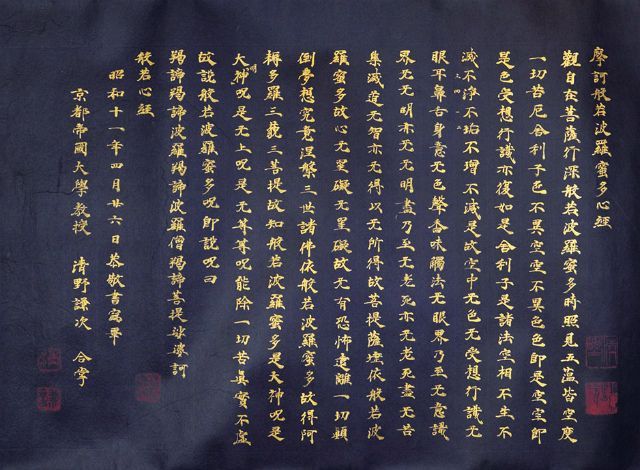 摩訶般若波羅蜜多心經
觀自在菩薩行深般若波羅蜜多時照見五蘊皆空度
一切苦厄舍利子色不異空空不異色色即是空空即
是色受想行識亦復如是舍利子是諸法空相不生不
滅不淨不垢不增不減是故空中无色无受想行識无
眼不鼻舌身意无色聲香味觸法无眼界乃至无意識
界无无明亦无无明盡乃至无老死亦无老死盡无苦
集滅道无智亦无得以无所得故菩提薩埵依般若波
羅蜜多故心无罣礙无罣礙故无有恐怖遠離一切顛
倒夢想究竟涅槃三世諸佛依般若波羅蜜多故得阿
耨多羅三藐三菩提故知般若波羅蜜多是大神呪是
大神明呪是无上呪是无等等呪能除一切苦真實不虛
故說般若波羅蜜多呪即說呪曰
羯諦羯諦波羅羯諦波羅僧羯諦菩提娑婆訶
般若心經
昭和十一年四月廿六日恭敬書寫畢
京都帝國大學教授 清野謙次 合掌